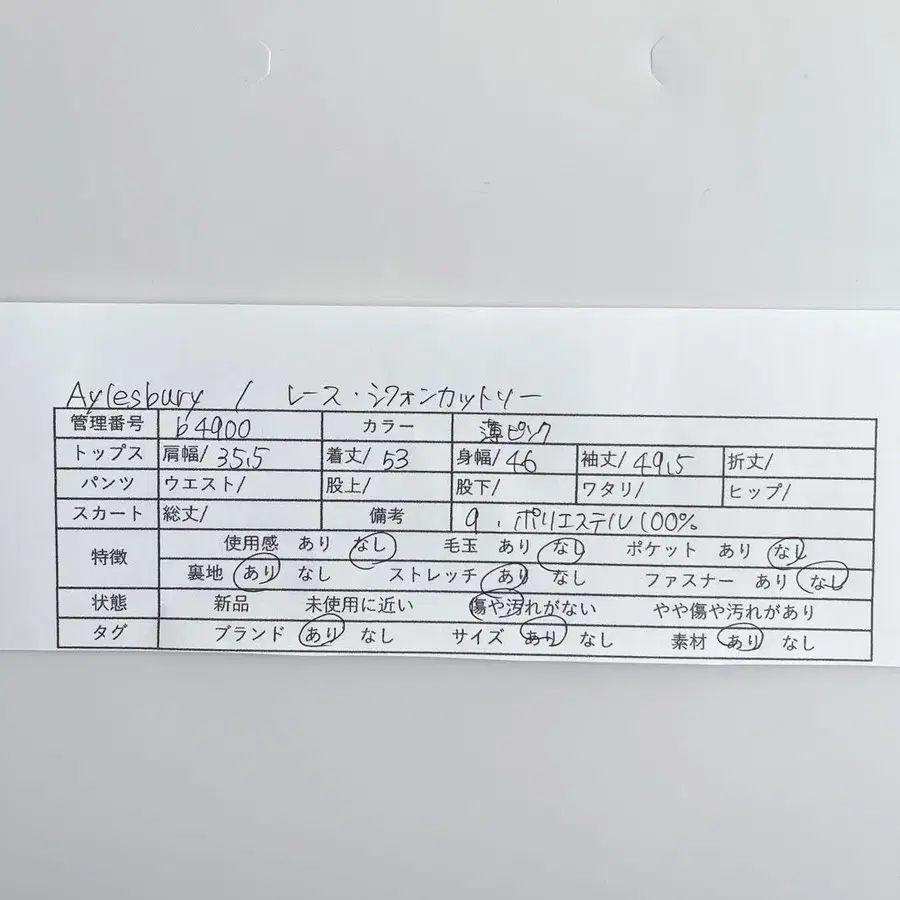 Aylesbury / レース・シフォンカットソー
管理番号 b4900 カラー 薄ピンク
トップス 肩幅/ 35.5 着丈/ 53 身幅/ 46 袖丈/ 49.5 折丈/
パンツ ウエスト/ 股上/ 股下/ ワタリ/ ヒップ/
スカート 総丈/ 備考 9. ポリエステル100%
特徴 使用感 あり なし 毛玉 あり なし ポケット あり なし
裏地 あり なし ストレッチ あり なし ファスナー あり なし
状態 新品 未使用に近い 傷や汚れがない やや傷や汚れがあり
タグ ブランド あり なし サイズ あり なし 素材 あり なし